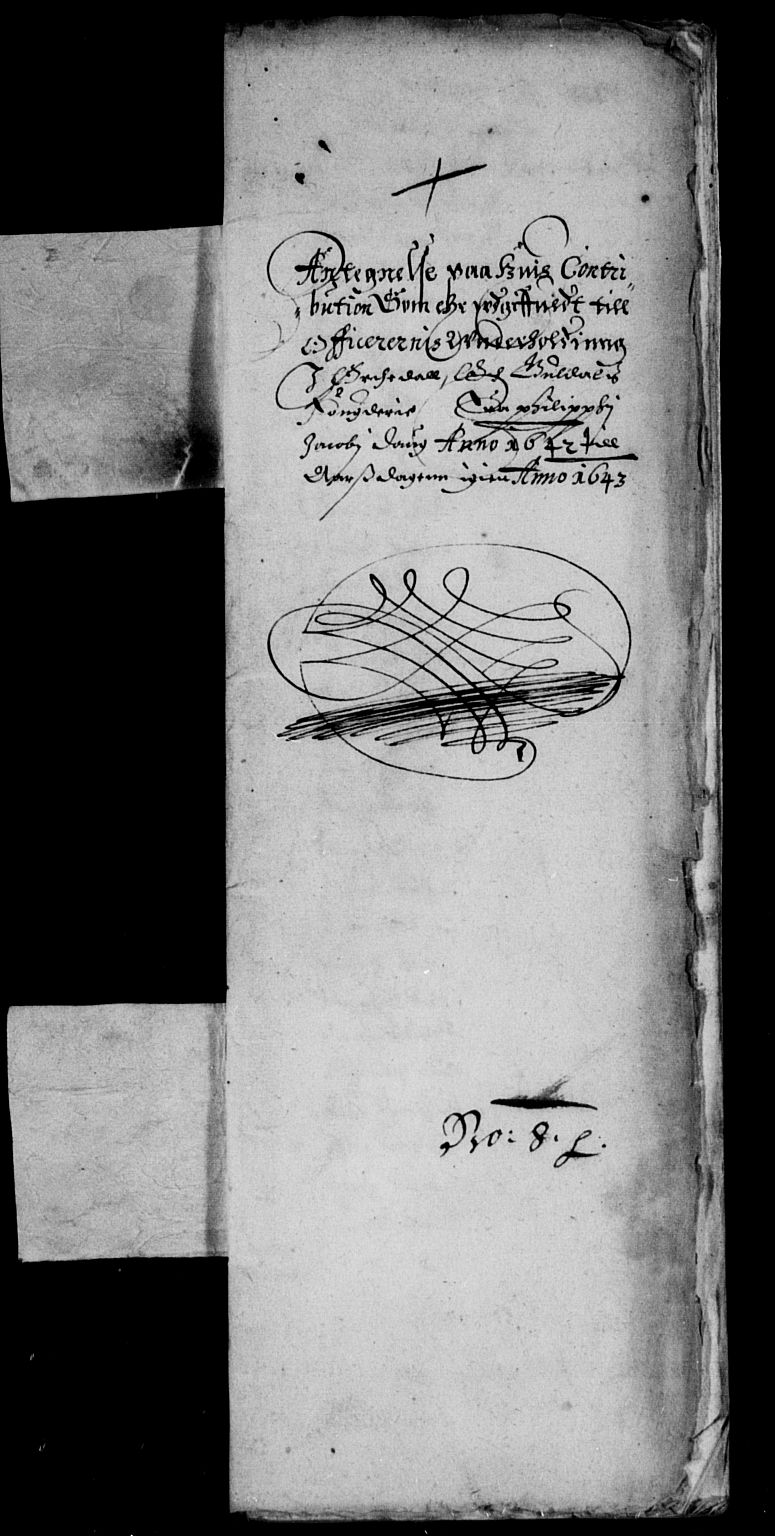 Antegnelse paa huis Contri„
„bution Som ehr udgiffuedt till
Officerernis Underholdning
I Orchedall, Guldals
Fougderie fra Philippi
Jacobi daug Anno 1642 till
Aarß dagenn igien Anno 1643
No: 8.